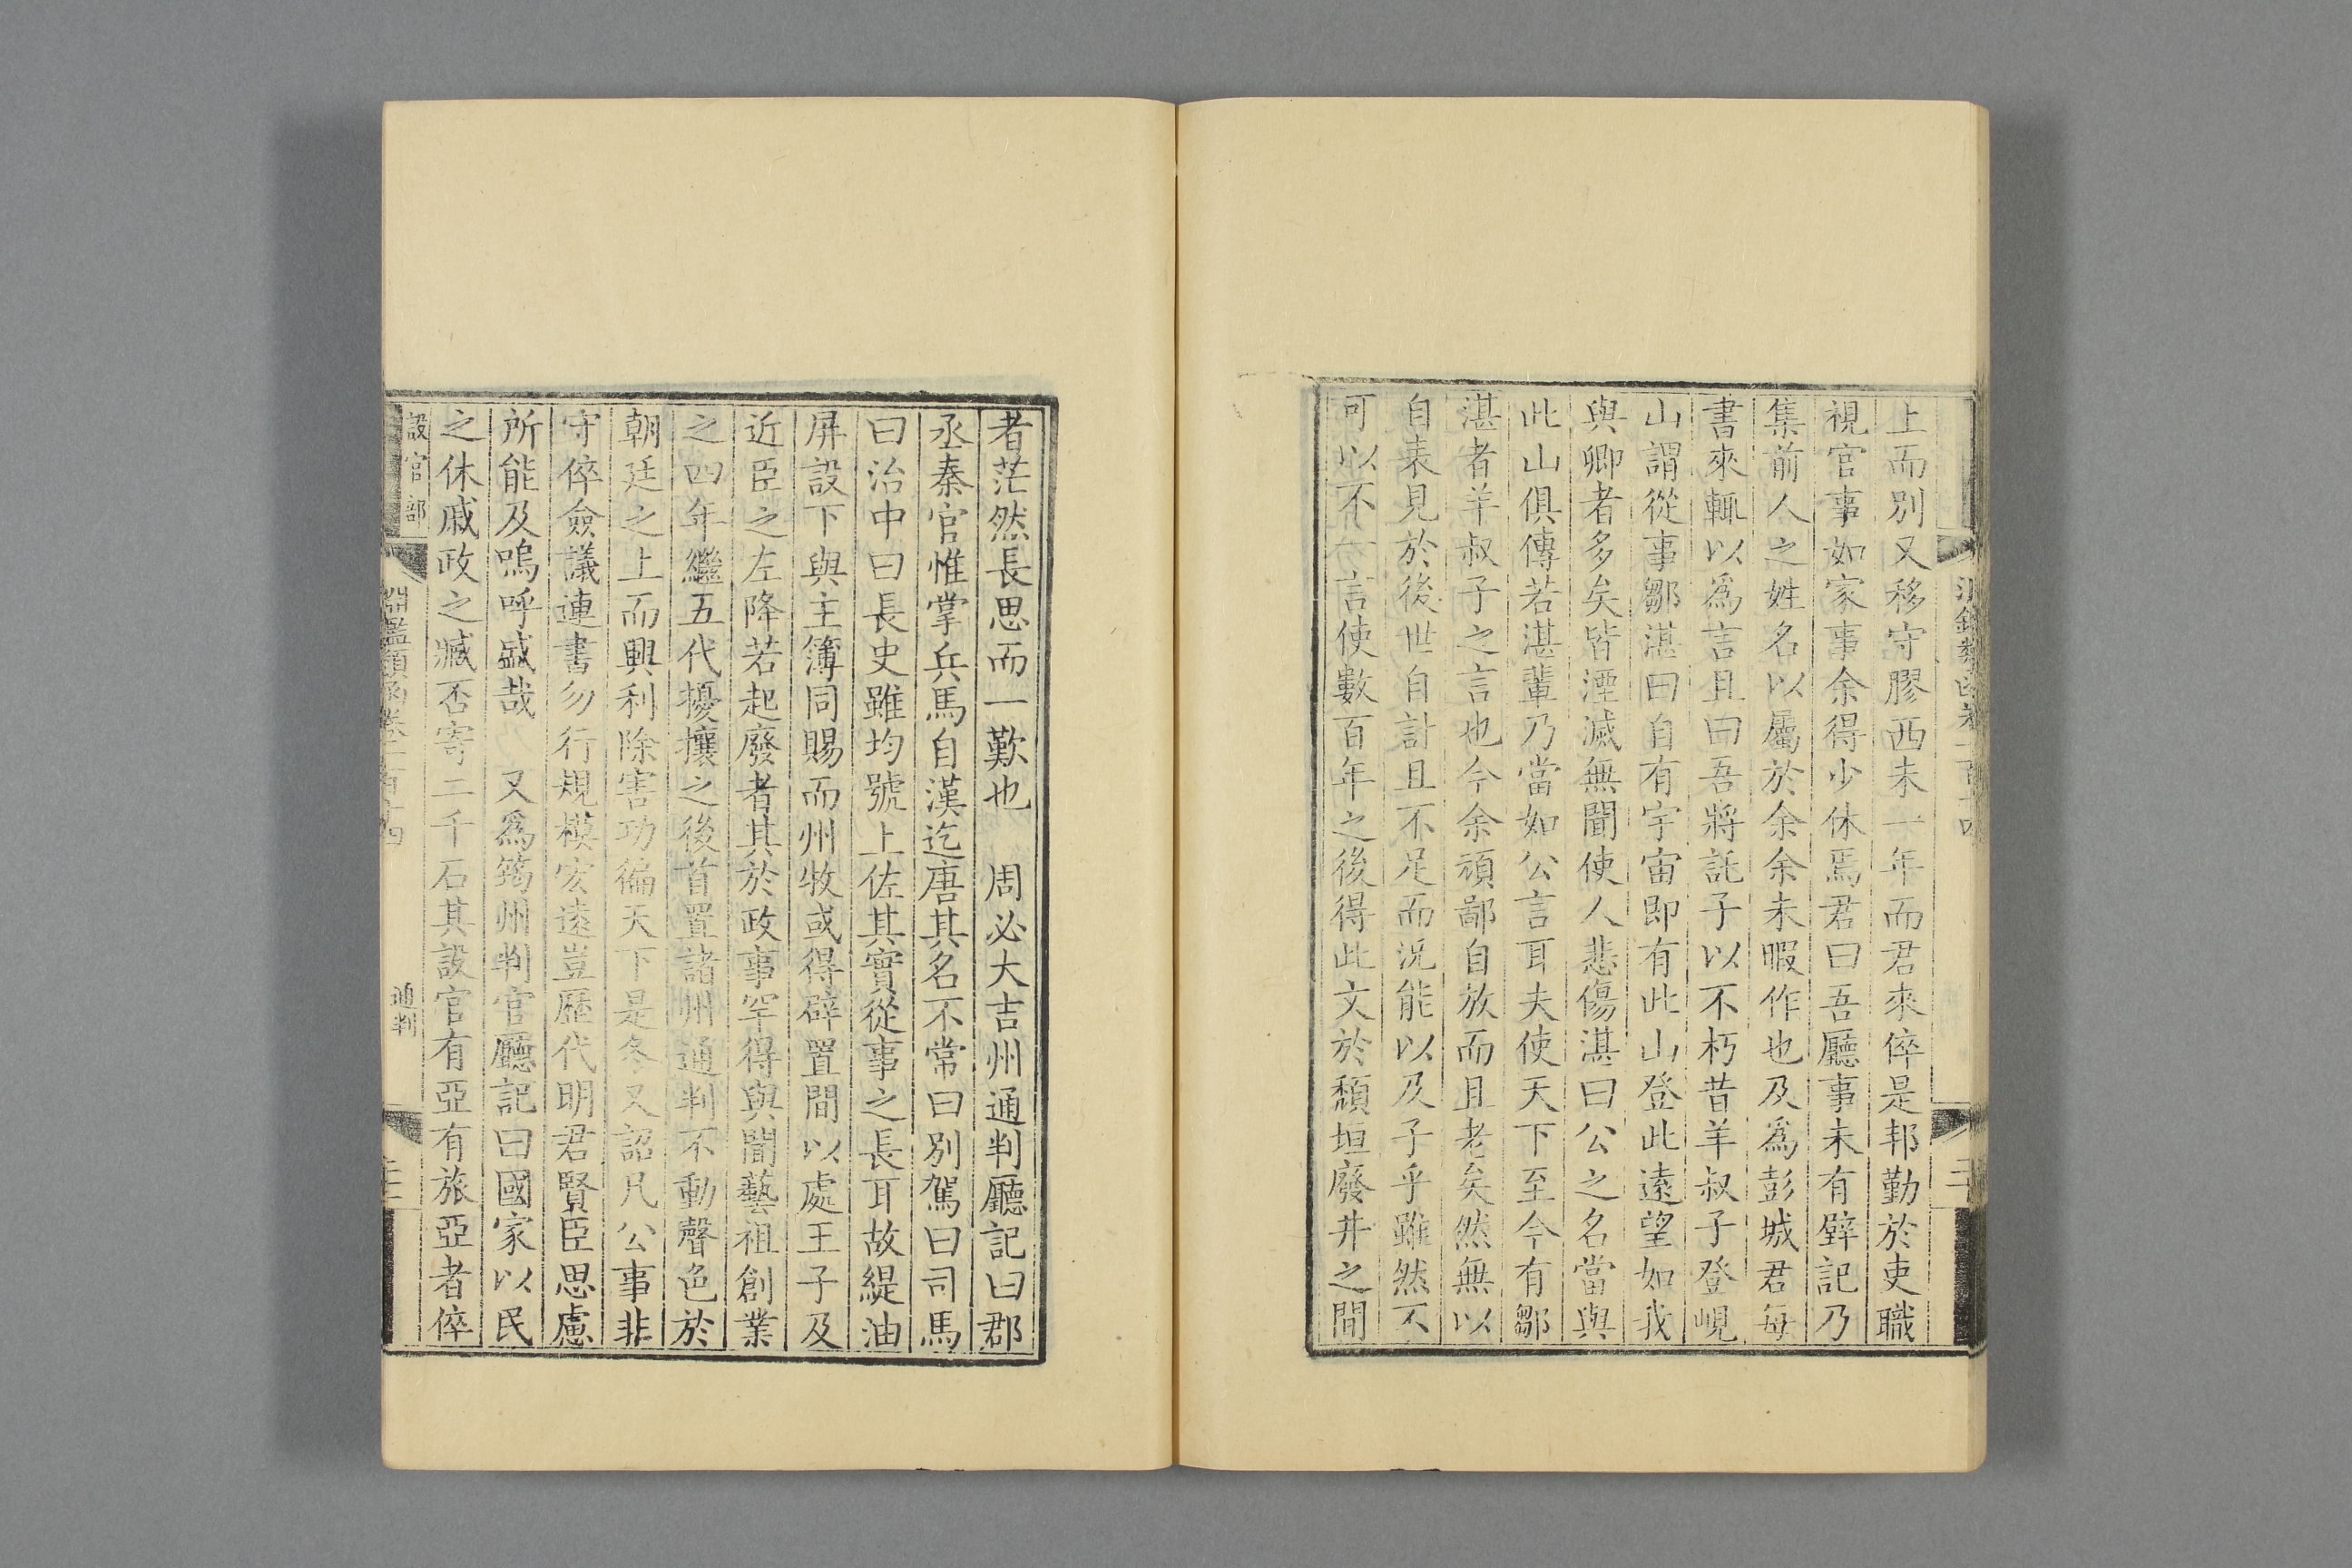 上而別又移守膠西未一年而君來倅是邦勤於吏職
視官事如家事余得少休焉君曰吾廳事未有壁記乃
集前人之姓名以屬於余余未暇作也及爲彭城君每
書來輒以爲言且曰吾將託子以不朽昔羊叔子登峴
山謂從事鄒湛曰自有宇宙即有此山登此遠望如我
與卿者多矣皆湮滅無聞使人悲傷湛曰公之名當與
此山俱傳若湛輩乃當如公言耳夫使天下至今有鄒
湛者羊叔子之言也今余頑鄙自放而且老矣然無以
自表見於後世自計且不足而況能以及子乎雖然不
可以不一言使數百年之後得此文於頹垣廢井之間
者茫然長思而一歎也　周必大吉州通判廳記曰郡
丞秦官惟掌兵馬自漢迄唐其名不常曰別駕曰司馬
曰治中曰長史雖均號上佐其實從事之長耳故緹油
屏設下與主簿同賜而州牧或得辟置間以處王子及
近臣之左降若起廢者其於政事罕得與聞藝祖創業
之四年繼五代擾攘之後首置諸州通判不動聲色於
朝廷之上而興利除害功徧天下是冬又詔凡公事非
守倅僉議連書勿行規模宏遠豈歷代明君賢臣思慮
所能及嗚呼盛哉　又爲筠州判官廳記曰國家以民
之休戚政之臧否寄二千石其設官有亞有旅亞者倅
設官部
淵鑑類函卷一百十四
通判